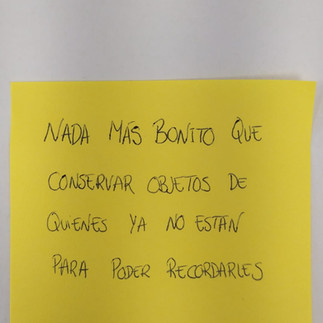 NADA MÁS BONITO QUE
CONSERVAR OBJETOS DE
QUIENES YA NO ESTÁN
PARA PODER RECORDARLES